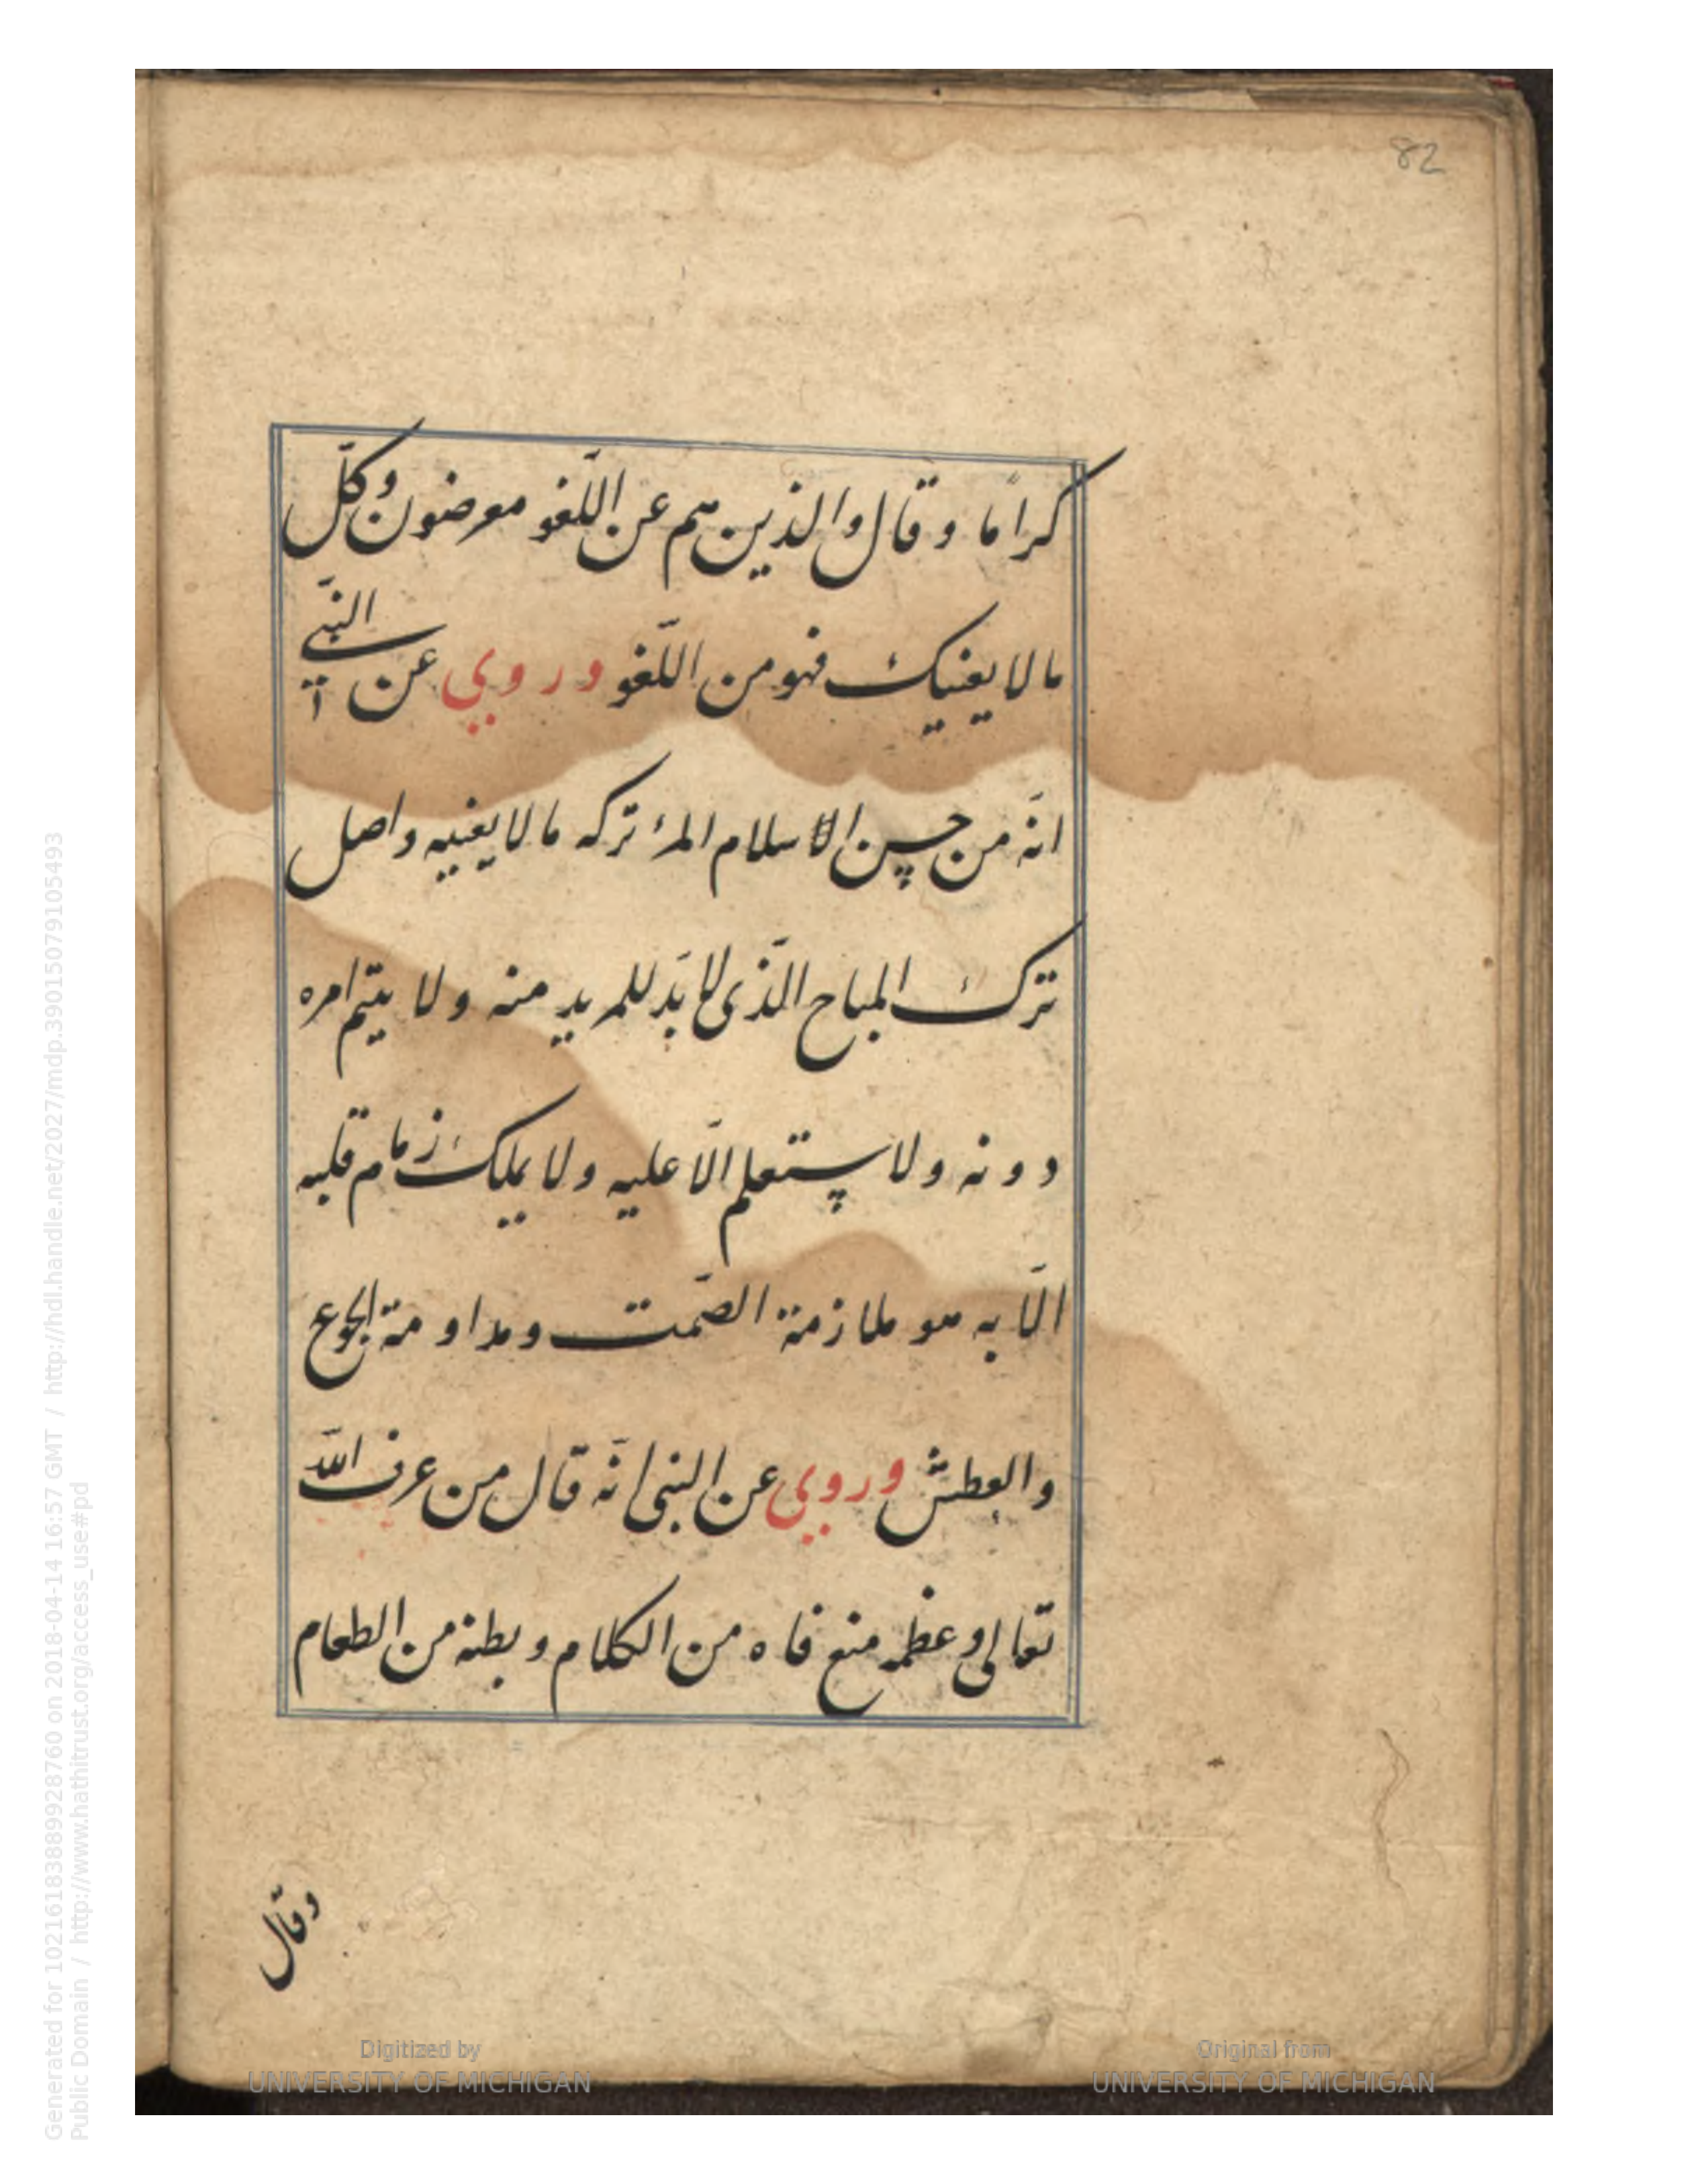 82
كرامًا وقال والذين هم عن اللّغو معرضون وكلّ
ما لا يعنيك فهو من اللّغو وروي عن النّبي
انّه من حسن الاسلام المرء تركه ما لا يعنيه واصل
ترك المباح الّذى لا بدّ للمريد منه ولا يتمّ امره
دونه ولا يستعلم الّا عليه ولا يملك زمام قلبه
الّا به هو ملازمة الصّمت ومداومة الجوع
والعطش وروي عن النبى انّه قال من عرف اللّه
تعالى وعظمه منع فاه من الكلام وبطنه من الطعام
وقال
Digitized by
UNIVERSITY OF MICHIGAN
Original from
UNIVERSITY OF MICHIGAN
Generated for 102161838899928760 on 2018-04-14 16:57 GMT / http://hdl.handle.net/2027/mdp.39015079105493
Public Domain / http://www.hathitrust.org/access_use#pd